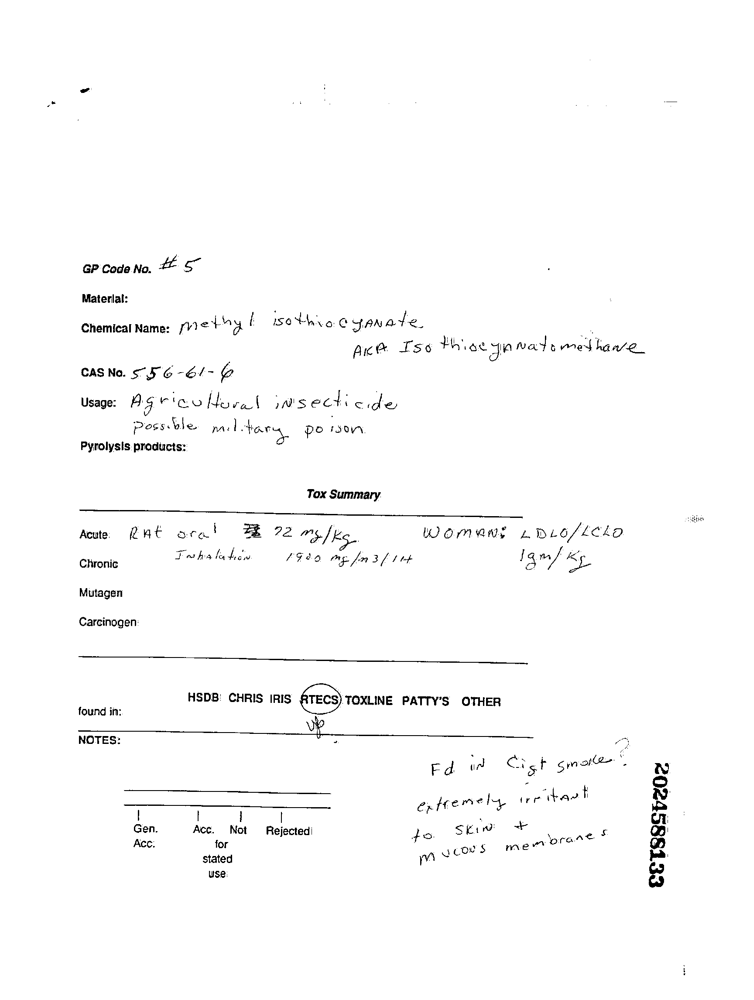 GP Code No. # 5
Material:
Chemical Name: Methyl isothiocyanate
AKA Isothiocyanatomethane
CAS No. 556-61-6
Usage: Agricultural insecticide
Possible military poison
Pyrolysis products:
Tox Summary
Acute: Rat oral 72 mg/kg Woman: LDLO/LCLO
Inhalation 1900 mg/m3/1H 1gm/kg
Chronic
Mutagen
Carcinogen
HSDB CHRIS IRIS RTECS TOXLINE PATTY'S OTHER
found in:
NOTES:
Fd in Cigt smoke?
extremely irritant
to skin +
mucous membranes
Gen. Acc. Not Rejected
Acc. for
stated
use
2024588133